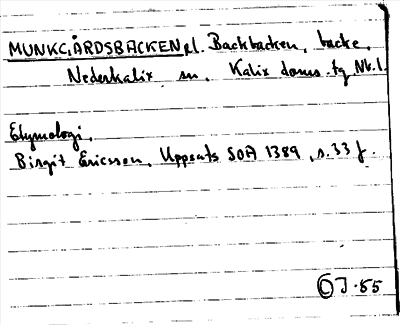 MUNKGÅRDSBACKEN, el. Backbacken, backe,
Nederkalix sn, Kalix doms. tg Nb. l.
Etymologi,
Birgit Ericsson, Uppsats SOA 1389, s. 33 f.
OJ·85